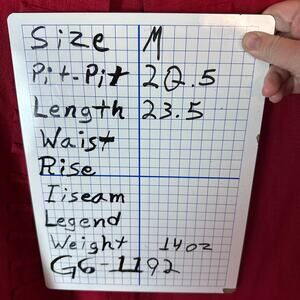 Size M
Pit-Pit 20.5
Length 23.5
Waist
Rise
Iiseam
Legend
Weight 14oz
G6-1192